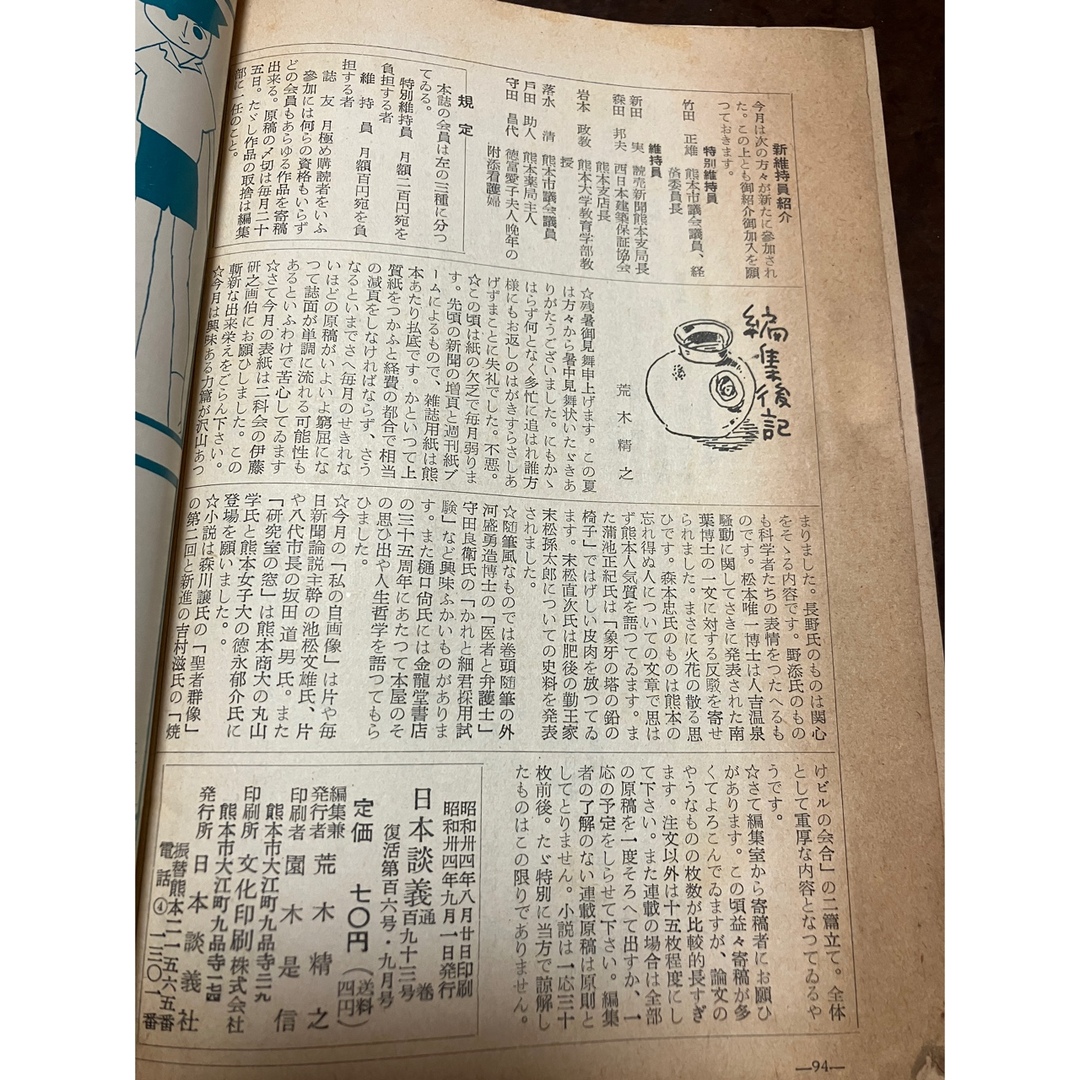 新維持員紹介
今月は次の方々が新たに参加され
た。この上とも御紹介御加入を願
つておきます。
特別維持員
竹田　正雄　熊本市議会議員、経
済委員長
維持員
新田　実　読売新聞熊本支局長
森田　邦夫　西日本建築保証協会
熊本支店長
岩本　政教　熊本大学教育学部教
授
落水　清　熊本市議会議員
戸田　助人　熊本薬局主人
守田　昌代　徳富愛子夫人晩年の
附添看護婦
規定
本誌の会員は左の三種に分つ
てゐる。
特別維持員　月額二百円宛を
負担する者
維持員　月額百円宛を負
担する者
誌友　月極め購読者をいふ
参加には何らの資格もいらず
どの会員もあらゆる作品を寄稿
出来る。原稿の〆切は毎月二十
五日。たゞし作品の取捨は編集
部に一任のこと。
編集後記
荒木精之
☆残暑御見舞申上げます。この夏
は方々から暑中見舞状いたゞきあ
りがたうございました。にもかゝ
はらず何となく多忙に追はれ誰方
様にもお返しのはがきすらさしあ
げずまことに失礼でした。不悪。
☆この頃は紙の欠乏で毎月弱りま
す。先頃の新聞の増頁と週刊紙ブ
ームによるもので、雑誌用紙は熊
本あたり払底です。かといつて上
質紙をつかふと経費の都合で相当
の減頁をしなければならず、さう
なるといまでさへ毎月のせきれな
いほどの原稿がいよいよ窮屈にな
つて誌面が単調に流れる可能性も
あるといふわけで苦心してゐます
☆さて今月の表紙は二科会の伊藤
研之画伯にお願ひしました。この
斬新な出来栄えをごらん下さい。
☆今月は興味ある力篇が沢山あつ
まりました。長野氏のものは関心
をそゝる内容です。野添氏のもの
も科学者たちの表情をつたへるも
のです。松本唯一博士は人吉温泉
騒動に関してさきに発表された南
葉博士の一文に対する反駁を寄せ
られました。まさに火花の散る思
ひです。森本忠氏のものは熊本の
忘れ得ぬ人についての文章で思は
ず熊本人気質を語つてゐます。ま
た蒲池正紀氏は「象牙の塔の鉛の
椅子」ではげしい皮肉を放つてゐ
ます。末松直次氏は肥後の勤王家
末松孫太郎についての史料を発表
されました。
☆随筆風なものでは巻頭随筆の外
河盛勇造博士の「医者と弁護士」
守田良衛氏の「かれと細君採用試
験」など興味ふかいものがありま
す。また樋口尙氏には金龍堂書店
の三十五周年にあたつて本屋のそ
の思ひ出や人生哲学を語つてもら
ひました。
☆今月の「私の自画像」は片や毎
日新聞論説主幹の池松文雄氏、片
や八代市長の坂田道男氏。また
「研究室の窓」は熊本商大の丸山
学氏と熊本女子大の徳永郁介氏に
登場を願いました。
☆小説は森川譲氏の「聖者群像」
の第二回と新進の吉村滋氏の「焼
けビルの会合」の二篇立て。全体
として重厚な内容となつてゐるや
うです。
☆さて編集室から寄稿者にお願ひ
があります。この頃益々寄稿が多
くてよろこんでゐますが、論文の
やうなものの枚数が比較的長すぎ
ます。注文以外は十五枚程度にし
て下さい。また連載の場合は全部
の原稿を一度そろへて出すか、一
応の予定をしらせて下さい。編集
者の了解のない連載原稿は原則と
してとりません。小説は一応三十
枚前後。たゞ特別に当方で諒解し
たものはこの限りでありません。
昭和卅四年八月廿日印刷
昭和卅四年九月一日発行
日本談義　通巻百九十三号
復活第百六号・九月号
定価　七〇円（送料四円）
編集兼発行者　荒木精之
印刷者　園木是信
熊本市大江町九品寺二九
印刷所　文化印刷株式会社
熊本市大江町九品寺一七四
発行所　日本談義社
振替熊本二一五六五番
電話④一三〇一番
—94—